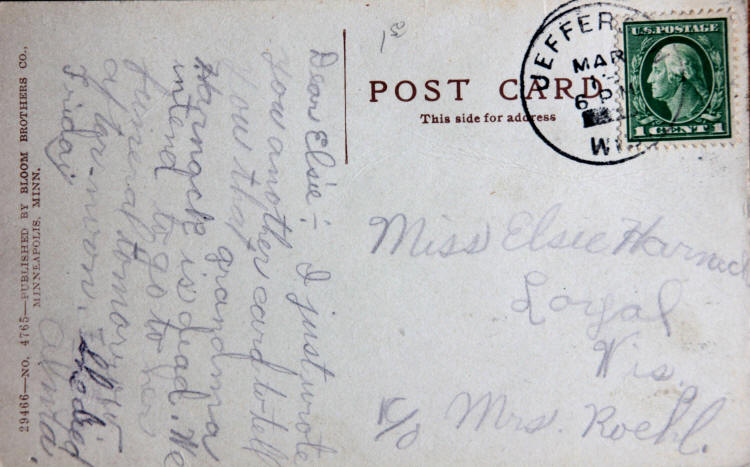 Dear Elsie:- I just wrote
you another card to tell
you that grandma
Harnack is dead. We
intend to go to her
funeral tomorrow
afternoon. She died
Friday
Alma.
29466—NO. 4765—PUBLISHED BY BLOOM BROTHERS CO.,
MINNEAPOLIS, MINN.
POST CARD
This side for address
JEFFER
MAR
6 PM
WI
U.S. POSTAGE
1 CENT 1
Miss Elsie Harnack
Loyal
Wis.
c/o Mrs. Roehl.